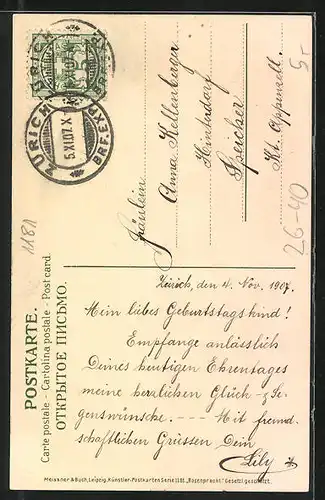 ZÜRICH
5.XI.07.X
BRF.EXP.
5
Fräulein
Anna Kellenberger
Hinterdorf
Speicher
Kt. Appenzell.
5-
26-40
1181
POSTKARTE.
Carte postale - Cartolina postale - Post card.
ОТКРЫТОЕ ПИСЬМО.
Zürich, den 4. Nov. 1907.
Mein liebes Geburtstagskind!
Empfange anlässlich
Deines heutigen Ehrentages
meine herzlichen Glück- & Se-
genswünsche. - - - - Mit freund-
schaftlichen Grüssen Dein
Lily
Meissner & Buch, Leipzig, Künstler-Postkarten Serie 1181 „Rosenpracht" Gesetzl. geschützt.